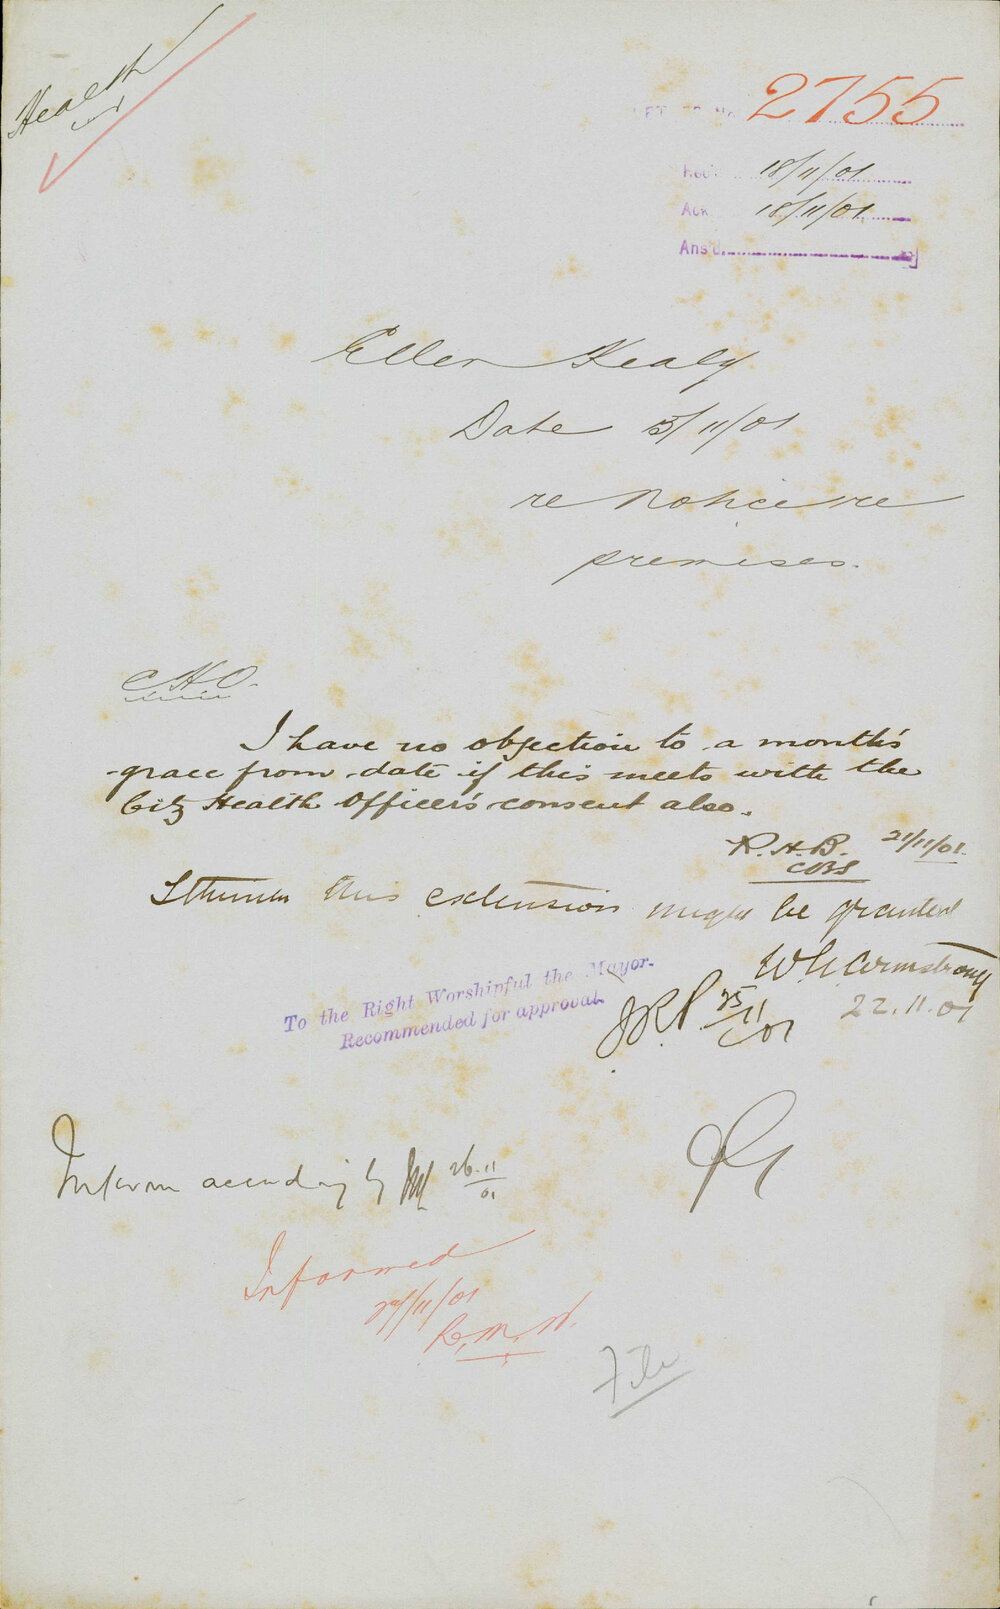 Health
LETTER No. 2755
Rec'd 18/11/01
Ack 18/11/01
Ans'd
Ellen Healy
Date 15/11/01
re Notice re
premises.
C H O.
I have no objection to a month's
grace from date if this meets with the
City Health Officer's consent also.
R. H. B. 21/11/01.
CBS
I think this extension might be granted
W G Armstrong
22.11.01
To the Right Worshipful the Mayor.
Recommended for approval.
25/11/01
Inform accordingly 26.11/01
Informed
/11/01
File